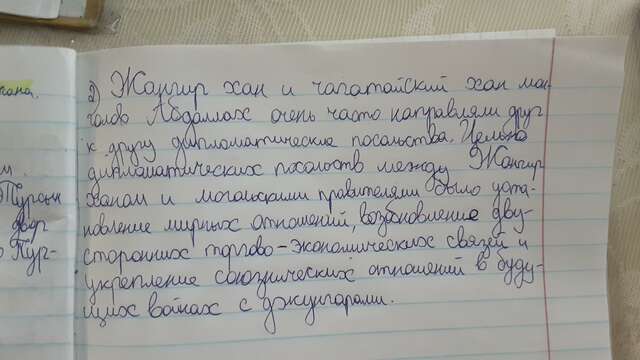 пана.
м
Турсын
двор
о Тур-
2) Жангир хан и чагатайский хан мон-
голов Абдаллах очень часто направляли друг
к другу дипломатические посольства. Целью
дипломатических посольств между Жангир
ханом и могольскими правителями было уста-
новление мирных отношений, возобновление дву-
сторонних торгово-экономических связей и
укрепление союзнических отношений в буду-
щих войнах с джунгарами.